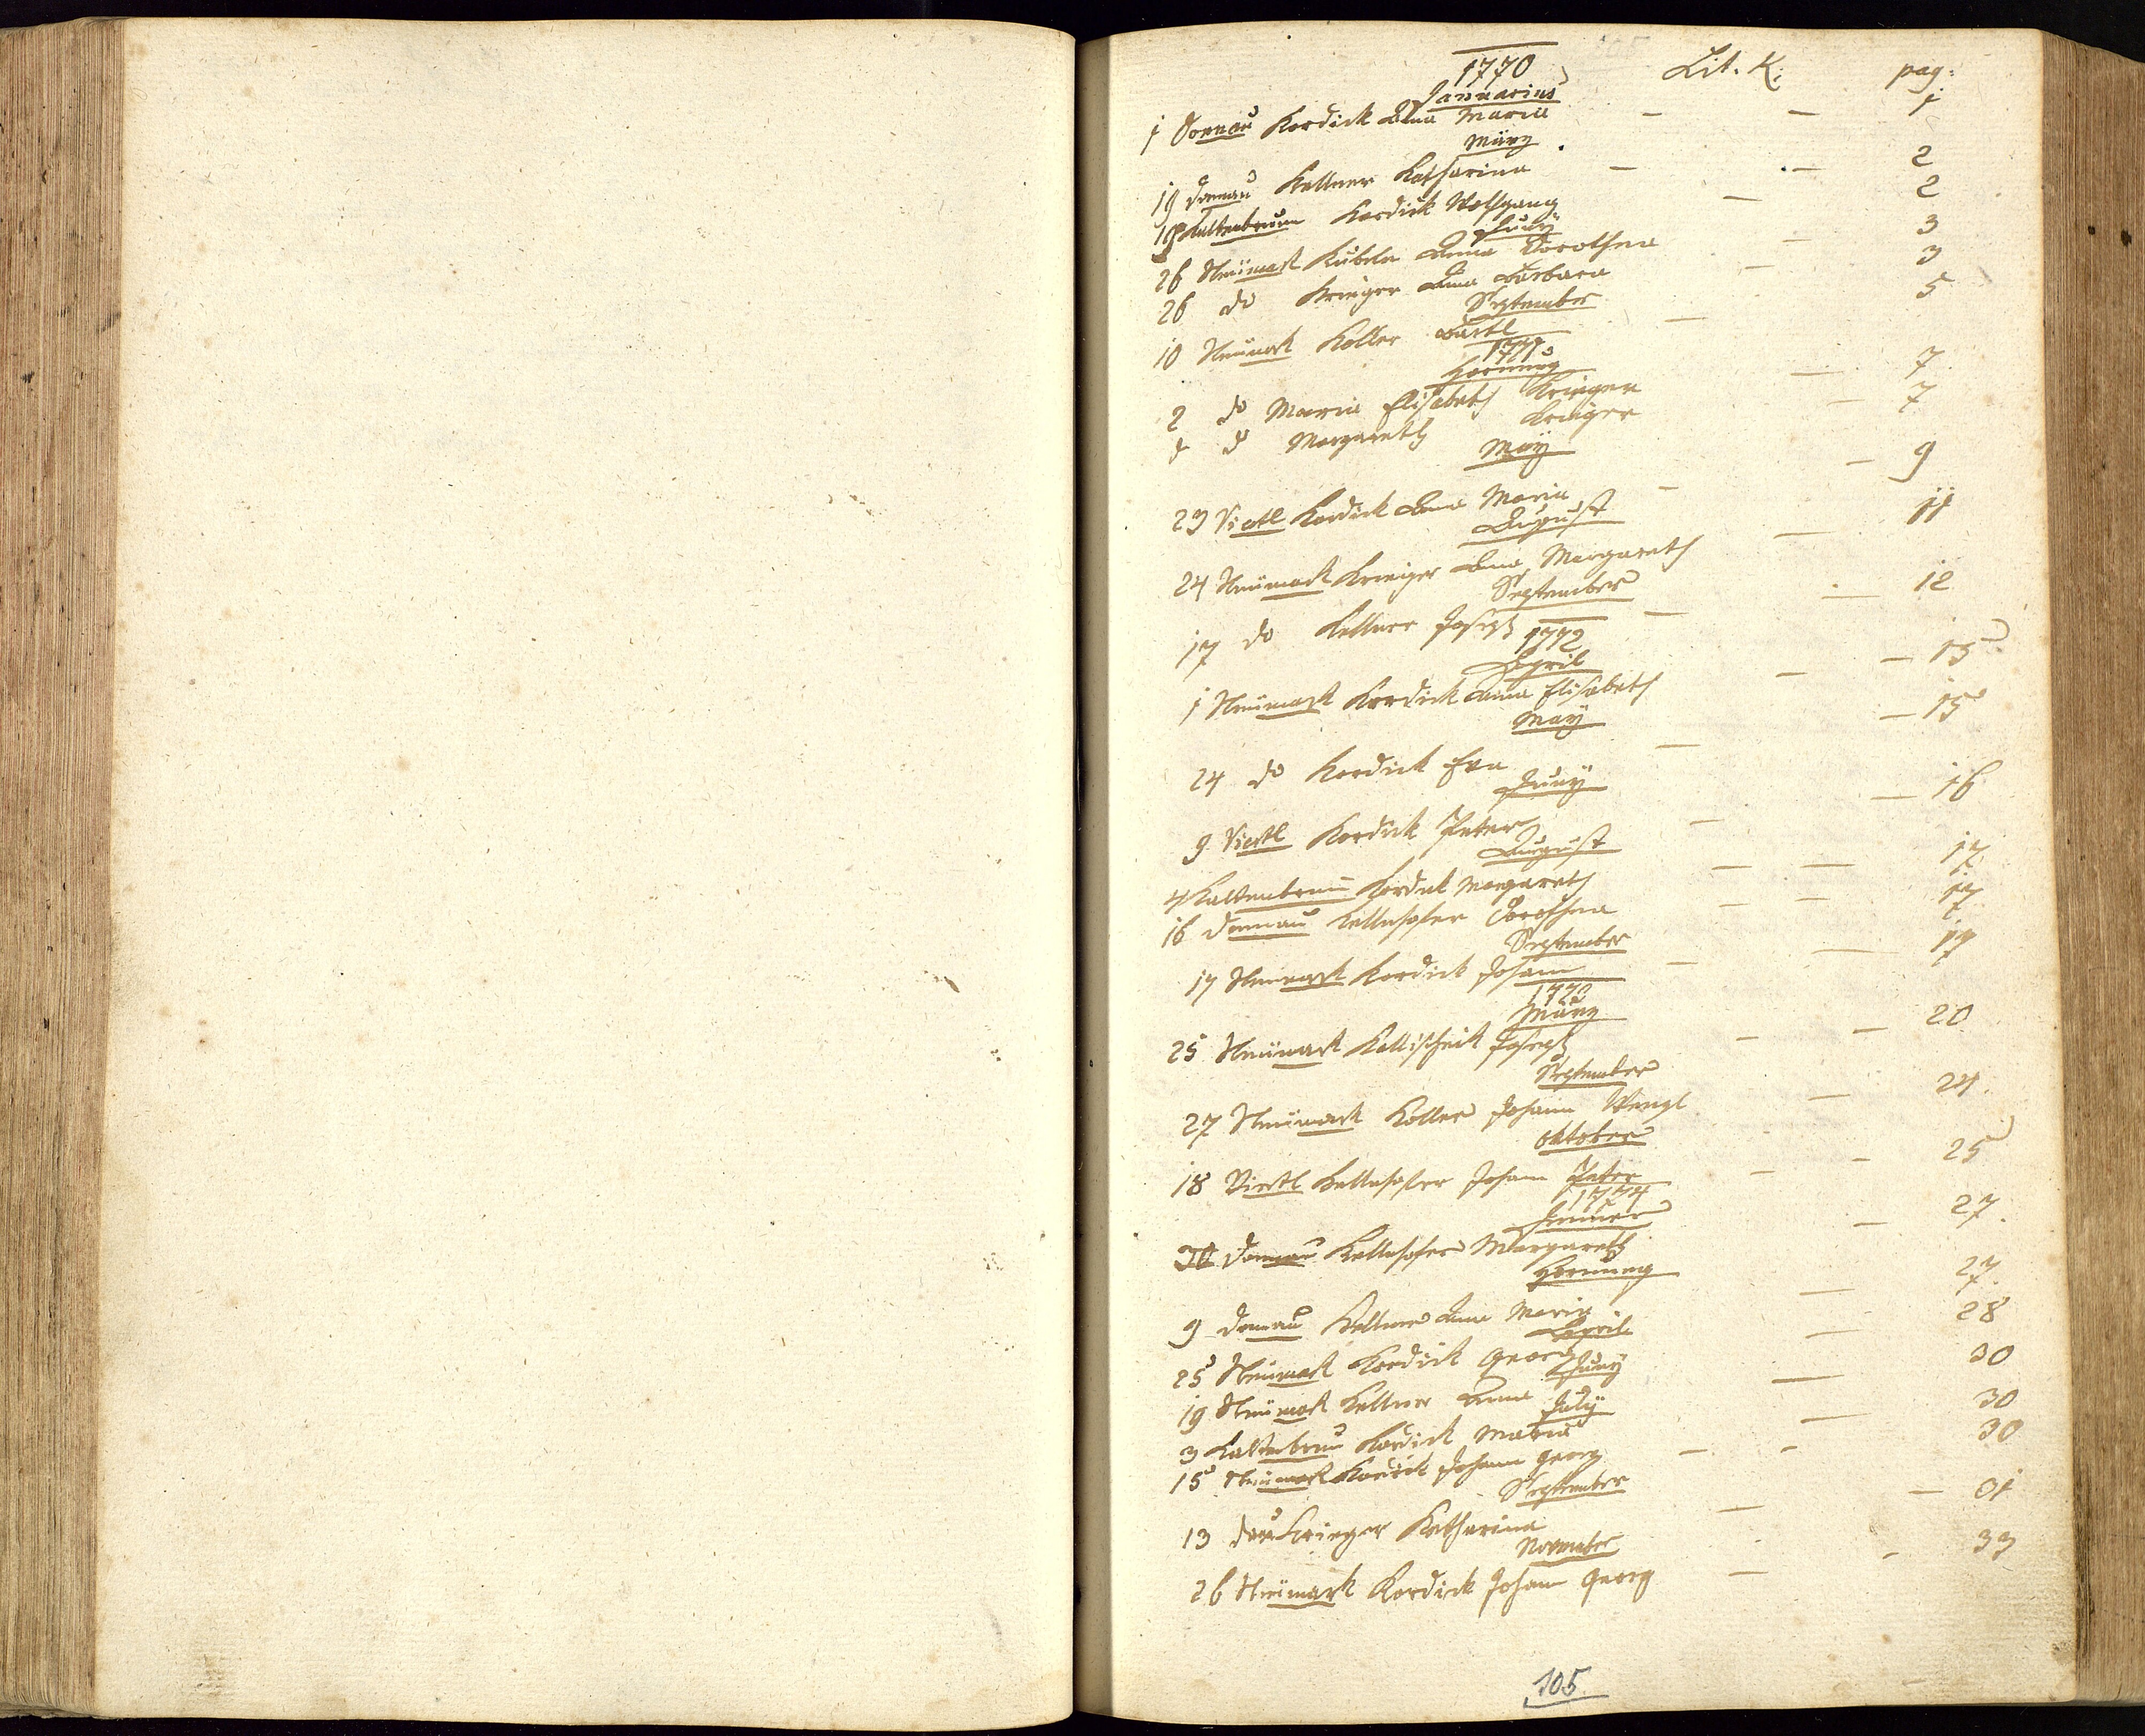 1770 Lit. K. pag:
Januarius
1 Donau Kordick Ana Maria — — 1
März
19 Donau Kellner Katharina — — 2
19 Kaltenbrunn Kordick Wolfgang — 2
Juny
26 Neümark Kübele Anna Dorothea — 3
26 do Krieger Ana Barbara — 3
September
10 Neümark Koller Bartl — 5
1771
Hornung
2 do Maria Elisabeth Krieger — 7
d d Margareth Krieger — 7
May
23 Viertl Kordick Ana Maria — — 9
August
24 Neümark Krieger Ana Margareth — 11
September
17 do Kellner Joseph — — 12
1772
April
1 Neümark Kordick Anna Elisabeth — — 15
May
24 do Kordick Eva — — 15
Juny
9 Viertl Kordick Peter — — 16
August
4 Kaltenbrun Kordick Margareth — — 17
16 Donau Dorothea — — 17
September
17 Neumark Kordick Johann — — 19
1773
März
25 Neümark Joseph — — 20
September
27 Neümark Koller Johann Wenzl — 24
Oktober
18 Viertl Johann Peter — — 25
1774
Jenner
30 Donau Margareth — 27
Hornung
9 Donau Kellner Ana Maria — 27
April
25 Neümark Kordick Georg — 28
Juny
19 Neümark Kellner Anna — 30
July
3 Kaltenbrun Kordick Maria — 30
15 Neümark Kordick Johann Georg — - 30
September
13 Krieger Katharina — — 31
November
26 Neümark Kordick Johann Georg — - 33
105